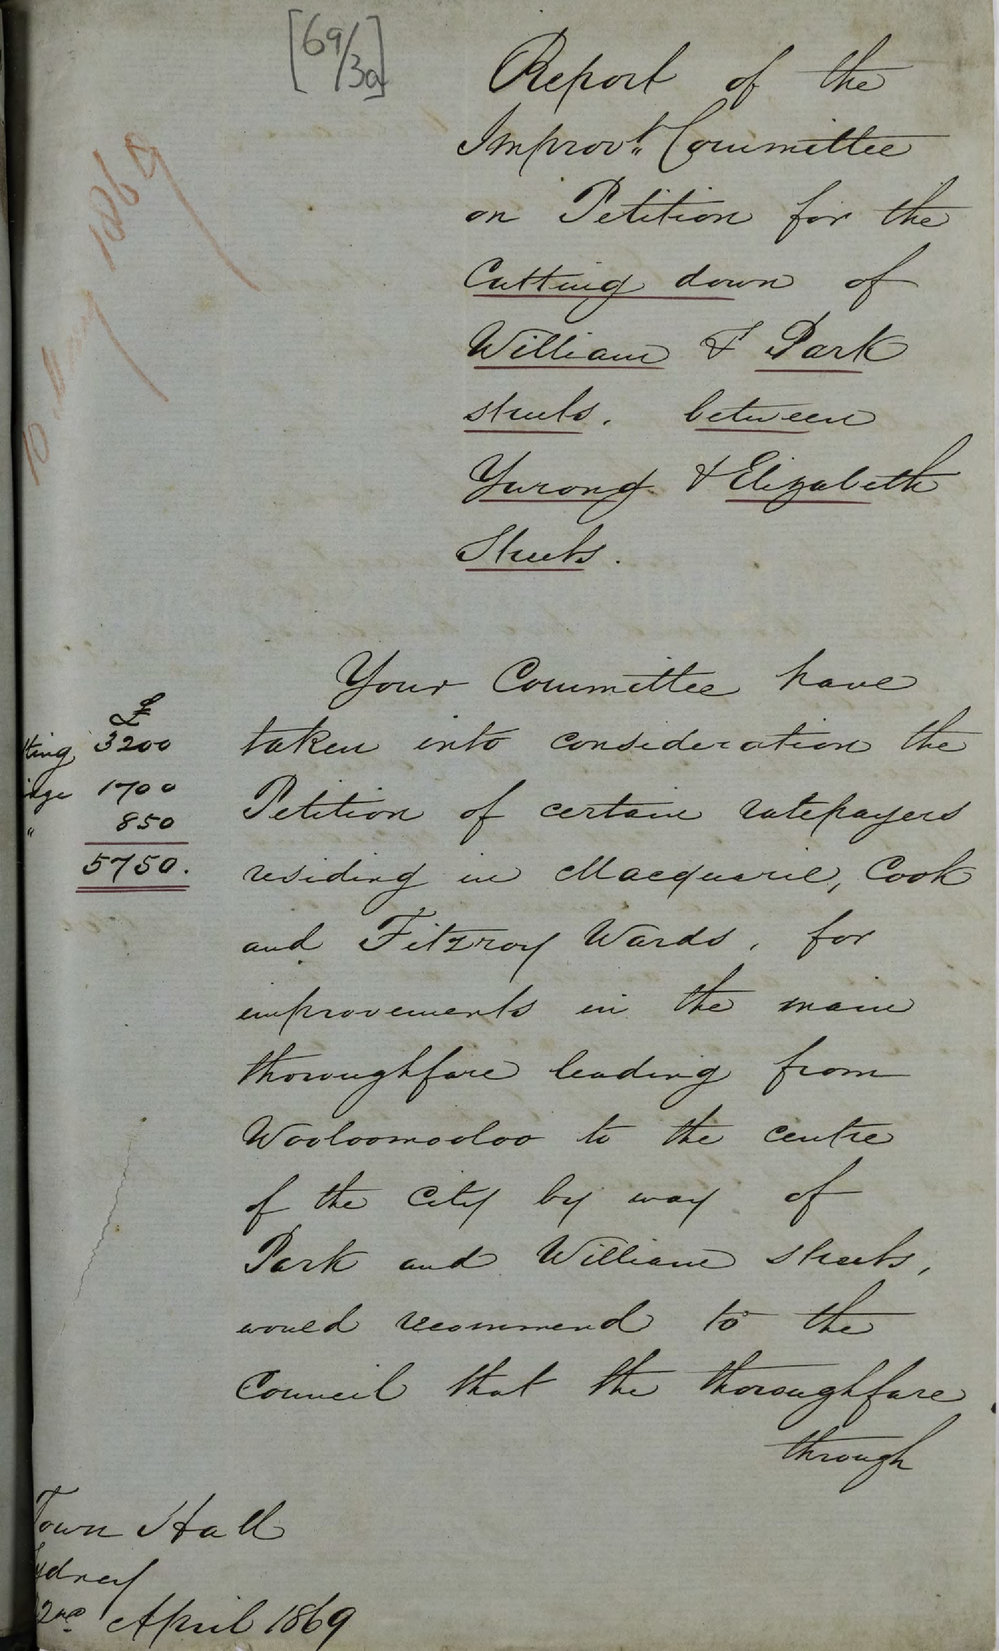 [69/30]
10 May 1869
Report of the
Improvt. Committee
on Petition for the
Cutting down of
William & Park
streets. between
Yurong & Elizabeth
Streets.
£
tting 3200
idge 1700
" 850
5750.
Your Committee have
taken into consideration the
Petition of certain ratepayers
residing in Macquarie, Cook
and Fitzroy Wards, for
improvements in the main
thoroughfare leading from
Wooloomooloo to the centre
of the City by way of
Park and William streets,
would recommend to the
Council that the thoroughfare
through
Town Hall
ydney
2nd April 1869